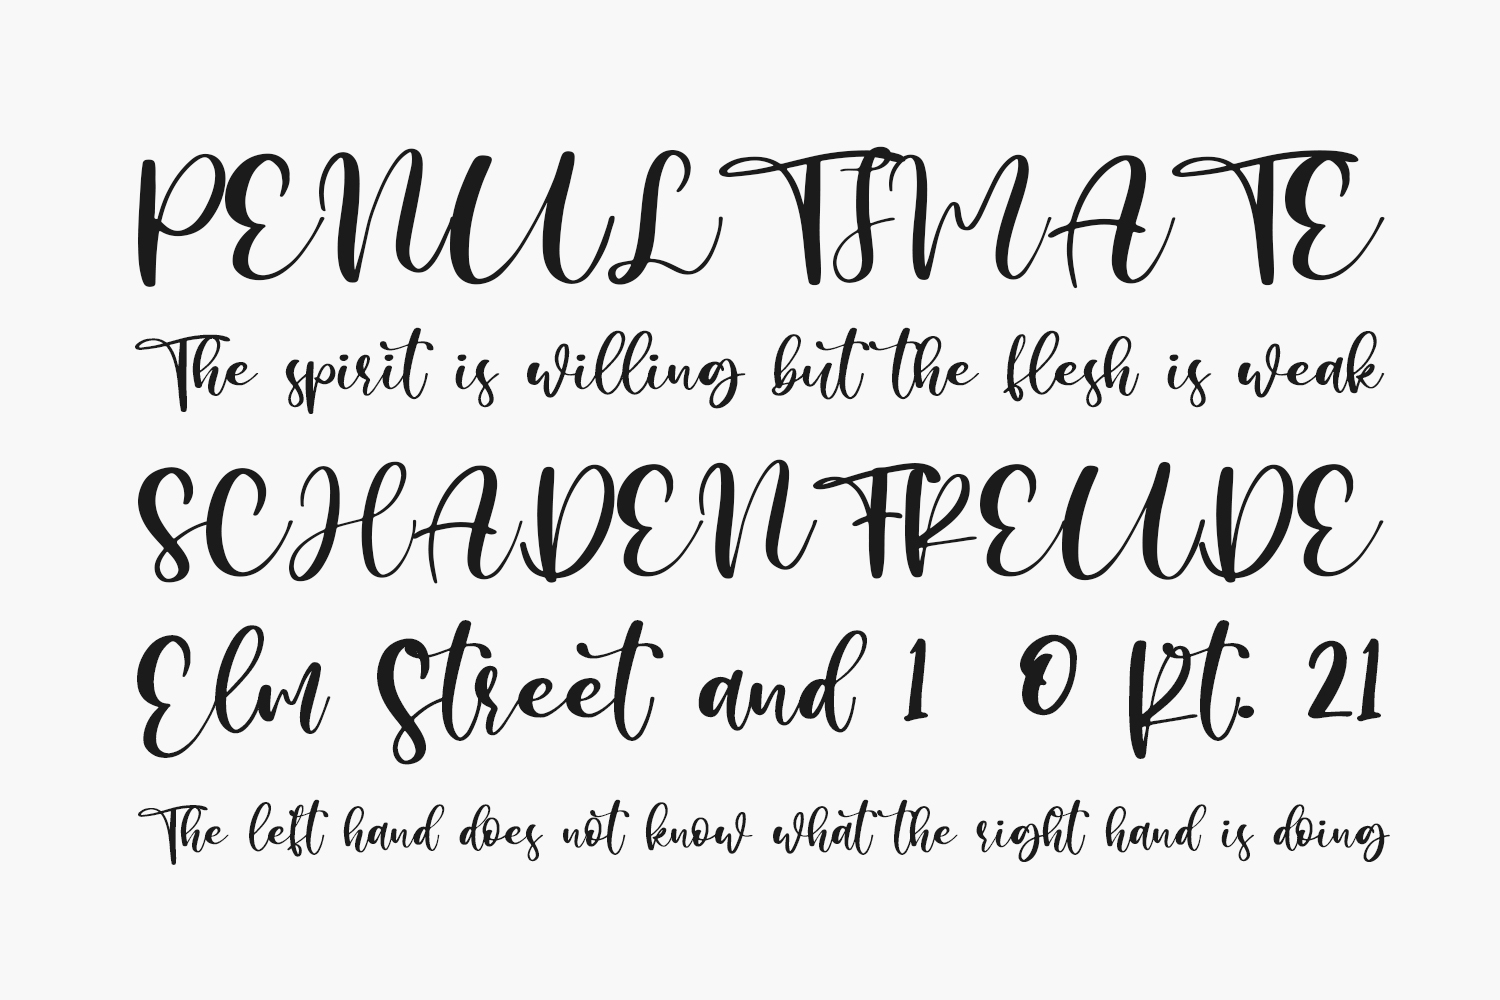 PENULTIMATE
The spirit is willing but the flesh is weak
SCHADENFREUDE
Elm Street and 1 0 Rt. 21
The left hand does not know what the right hand is doing